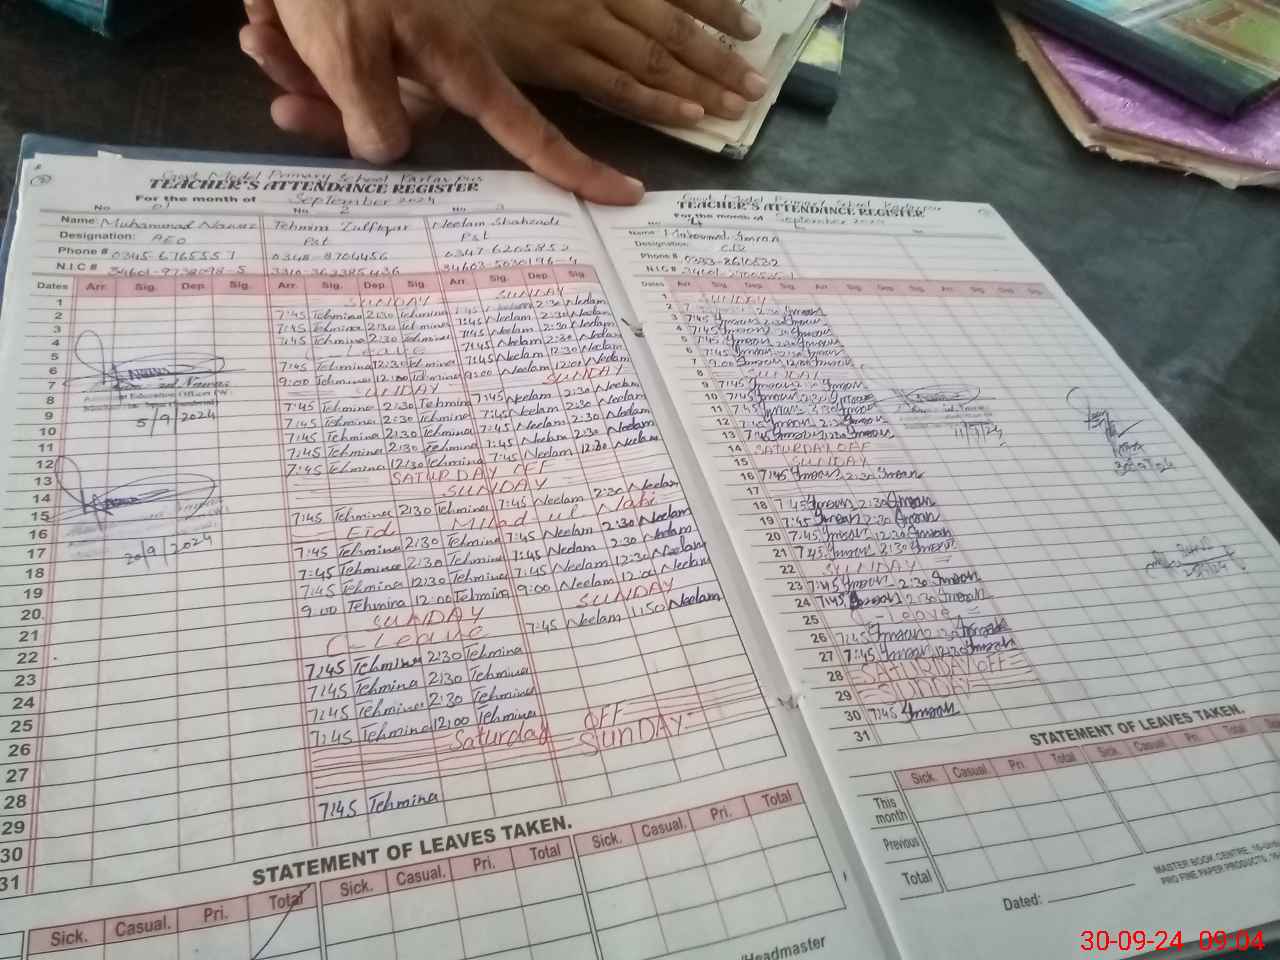 TEACHER'S ATTENDANCE REGISTER
For the month of September 2024
No 01 No. 2 No.
Name: Muhammad Nawaz Tehmina Zulfiqar Neelam Shahzadi
Designation: AEO Pst Pst
Phone # 0345-6765557 0348-8704456 0347-6205852
N.I.C #
Dates Arr. Sig. Dep. Sig. Arr. Sig. Dep. Sig. Arr. Sig. Dep. Sig.
1 SUNDAY SUNDAY
2 7:45 Tehmina 2:30 Tehmina Neelam 2:30 Neelam
3 7:45 Tehmina 2:30 Tehmina 7:45 Neelam 2:30 Neelam
4 7:45 Tehmina 2:30 Tehmina 7:45 Neelam 2:30 Neelam
5 Leave 7:45 Neelam 2:30 Neelam
6 7:45 Tehmina 12:30 Tehmina 7:45 Neelam 12:30 Neelam
7 9:00 Tehmina 12:00 Tehmina 9:00 Neelam 12:00 Neelam
8 SUNDAY SUNDAY
5/9/2024
9 7:45 Tehmina 2:30 Tehmina 7:45 Neelam 2:30 Neelam
10 7:45 Tehmina 2:30 Tehmina 7:45 Neelam 2:30 Neelam
11 7:45 Tehmina 2:30 Tehmina 7:45 Neelam 2:30 Neelam
12 7:45 Tehmina 2:30 Tehmina 7:45 Neelam 2:30 Neelam
13 7:45 Tehmina 12:30 Tehmina 7:45 Neelam 12:30 Neelam
14 SATURDAY OFF
15 SUNDAY
16 7:45 Tehmina 2:30 Tehmina 7:45 Neelam 2:30 Neelam
17 Eid Milad ul Nabi
20/9/2024
18 7:45 Tehmina 2:30 Tehmina 7:45 Neelam 2:30 Neelam
19 7:45 Tehmina 2:30 Tehmina 7:45 Neelam 2:30 Neelam
20 7:45 Tehmina 12:30 Tehmina 7:45 Neelam 12:30 Neelam
21 9:00 Tehmina 12:00 Tehmina 9:00 Neelam 12:00 Neelam
22 SUNDAY SUNDAY
23 C-Leave 7:45 Neelam 11:50 Neelam
24 7:45 Tehmina 2:30 Tehmina
25 7:45 Tehmina 2:30 Tehmina
26 7:45 Tehmina 2:30 Tehmina
27 7:45 Tehmina 12:00 Tehmina
28 Saturday OFF
29 SUNDAY
30 7:45 Tehmina
31
STATEMENT OF LEAVES TAKEN.
Sick. Casual. Pri. Total Sick. Casual. Pri. Total Sick. Casual. Pri. Total
/Headmaster
TEACHER'S ATTENDANCE REGISTER
For the month of September 2024
No 4
Name: Muhammad Imran
Designation:
Phone # 0333-8610832
N.I.C #
Dates Arr. Sig. Dep. Sig. Arr. Sig. Dep. Sig. Arr. Sig. Dep. Sig.
1 SUNDAY
2
3 7:45 Imran 2:30 Imran
4 7:45 Imran 2:30 Imran
5 7:45 Imran 2:30 Imran
6 7:45 Imran 12:30 Imran
7 9:00 Imran 12:00 Imran
8 SUNDAY
9 7:45 Imran 2:30 Imran
10 7:45 Imran 2:30 Imran
11 7:45 Imran 2:30 Imran
12 7:45 Imran 2:30 Imran
13 7:45 Imran 12:30 Imran
14 SATURDAY OFF
15 SUNDAY
16 7:45 Imran 2:30 Imran
17
18 7:45 Imran 2:30 Imran
19 7:45 Imran 2:30 Imran
20 7:45 Imran 12:30 Imran
21 7:45 Imran 2:30 Imran
22 SUNDAY
23 7:45 Imran 2:30 Imran
24 7:45 Imran 2:30 Imran
25 C-Leave
26 7:45 Imran 2:30 Imran
27 7:45 Imran 12:30 Imran
28 SATURDAY OFF
29 SUNDAY
30 7:45 Imran
31
STATEMENT OF LEAVES TAKEN.
Sick. Casual. Pri. Total Sick. Casual. Pri.
This month
Previous
Total
MASTER BOOK CENTRE,
PRO FINE PAPER PRODUCTS,
Dated:
30-09-24 09:04